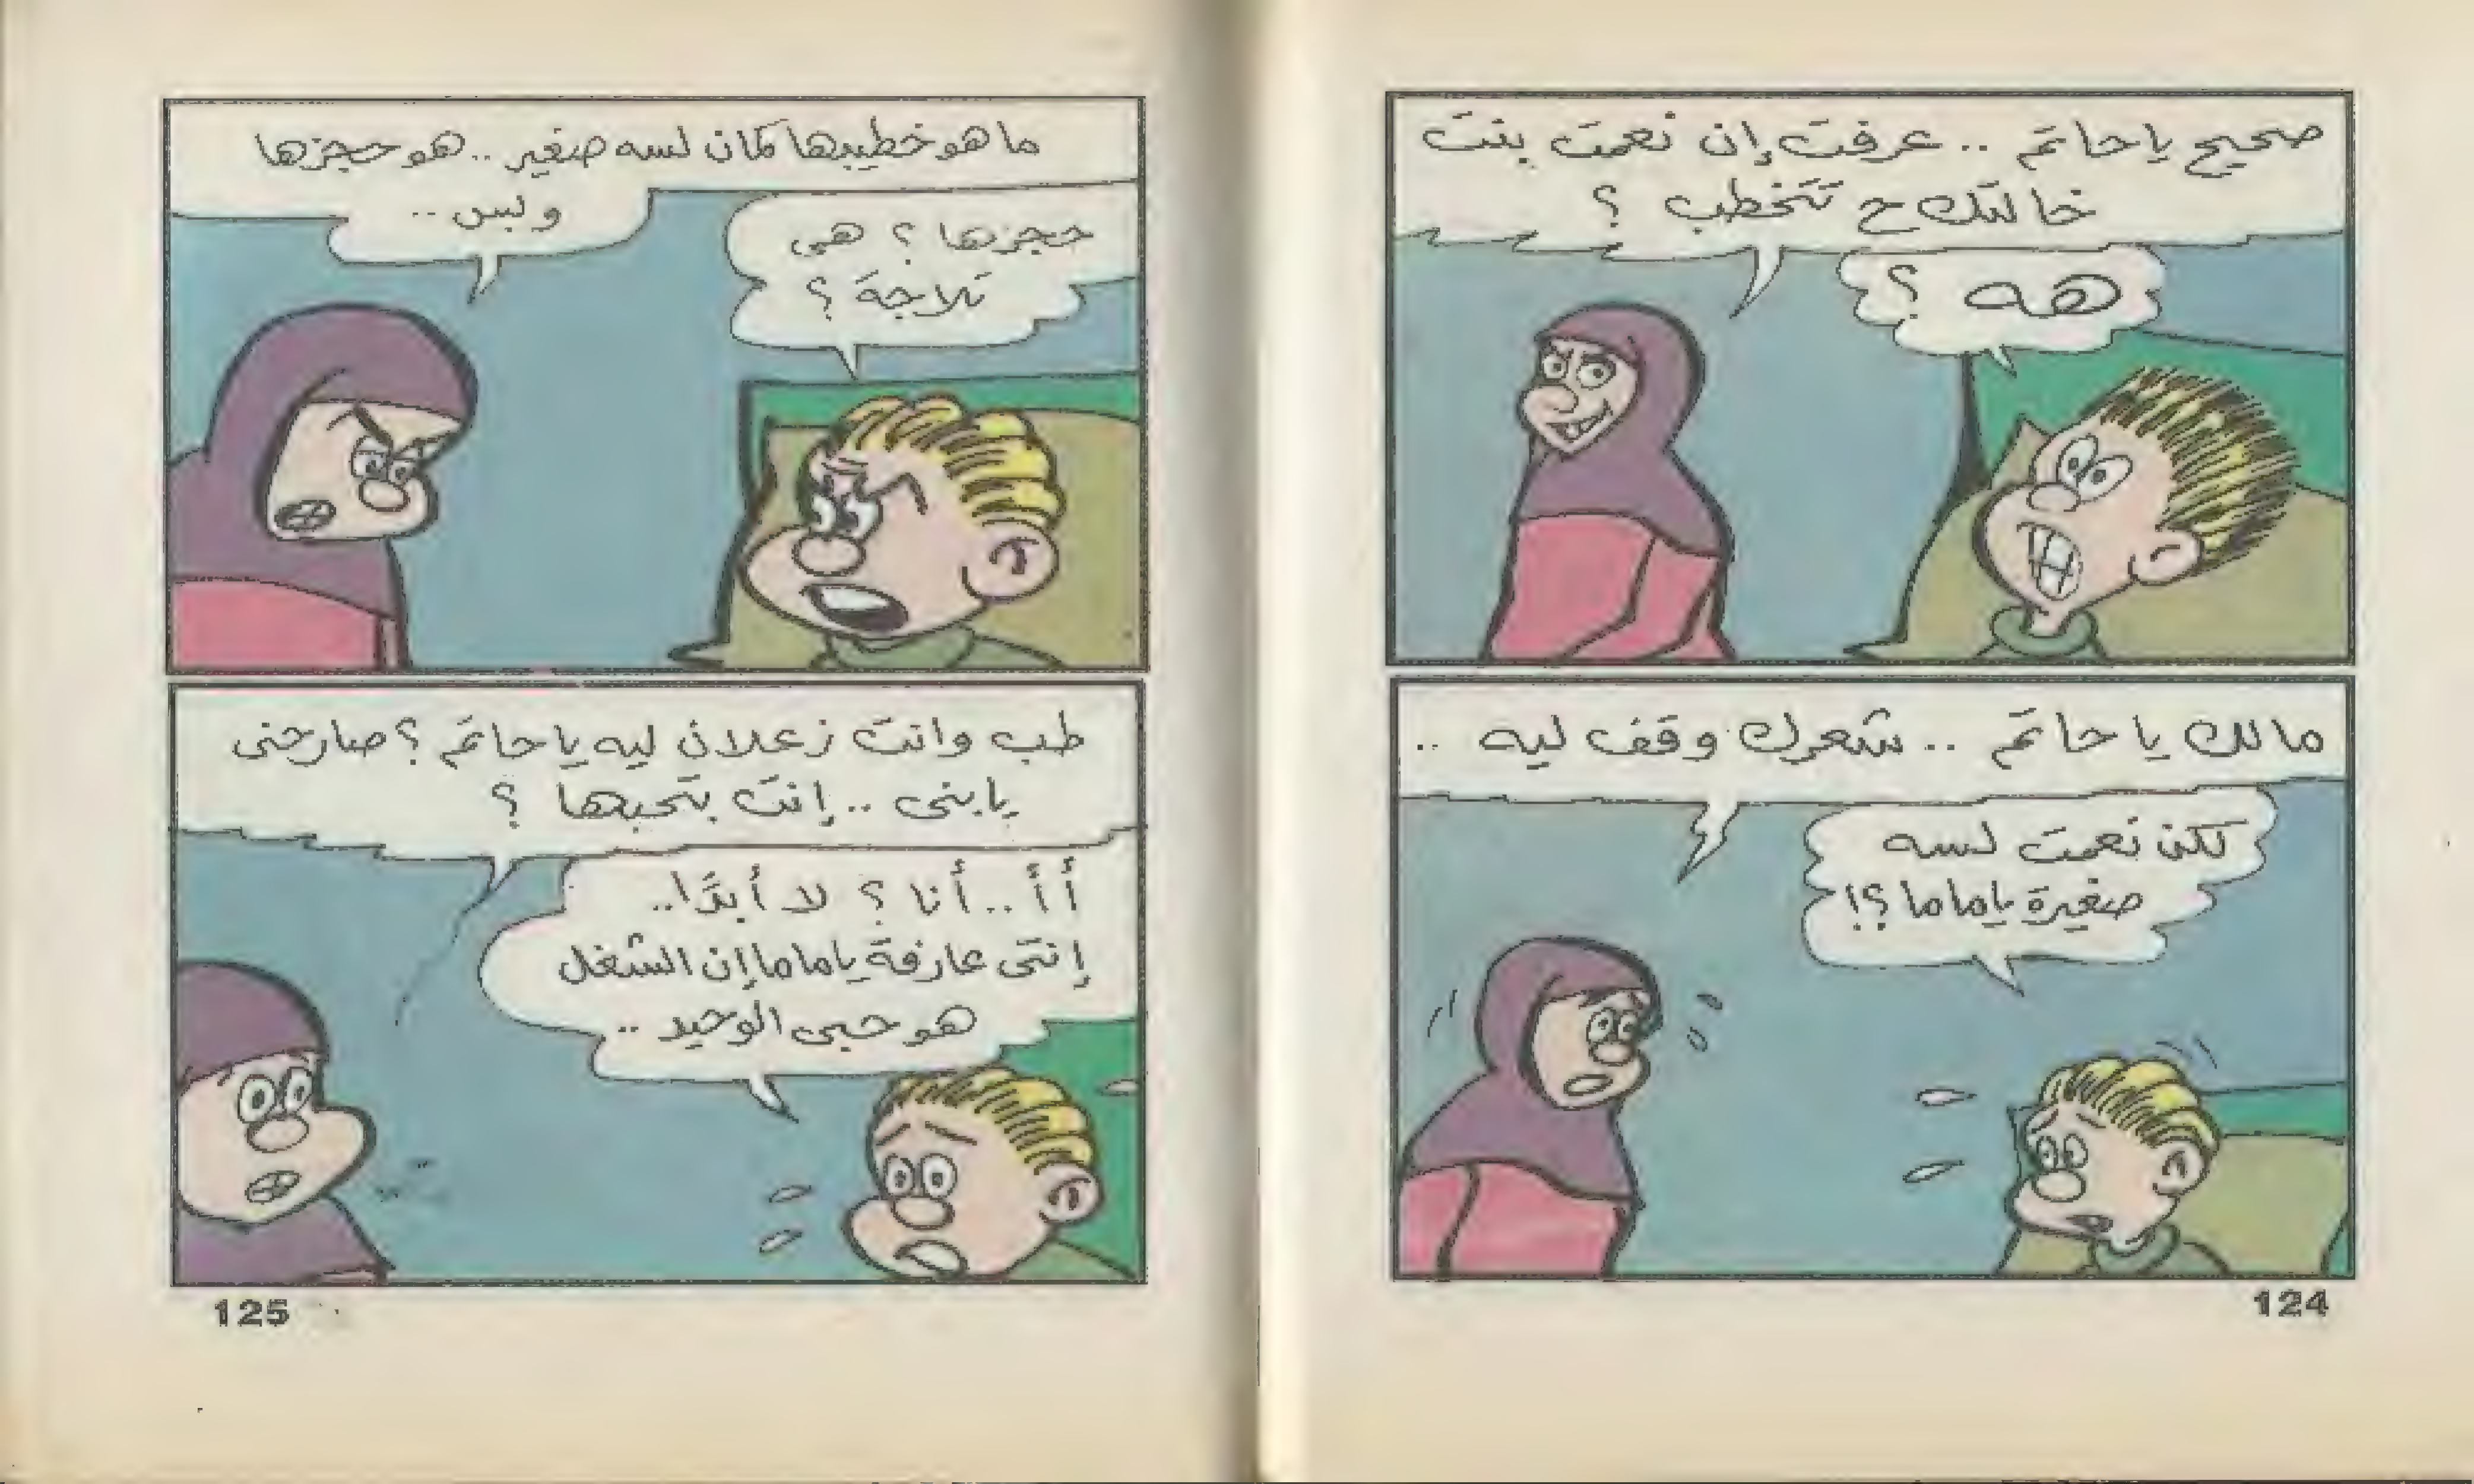 صحيح يا حاتم .. عرفت إن نعمت بنت
خالتك ح تتخطب ؟
هه ؟
مالك يا حاتم .. شعرك وقف ليه ..
لكن نعمت لسه
صغيرة ياماما ؟!
124
ما هو خطيبها كمان لسه صغير .. هو حجزها
وبس ..
حجزها ؟ هى
تلاجة ؟
طب وانت زعلان ليه يا حاتم ؟ صارحنى
يابنى .. إنت بتحبها ؟
أ أ .. أنا ؟ لا أبدًا ..
إنتى عارفة ياماما إن الشغل
هو حبى الوحيد ..
125